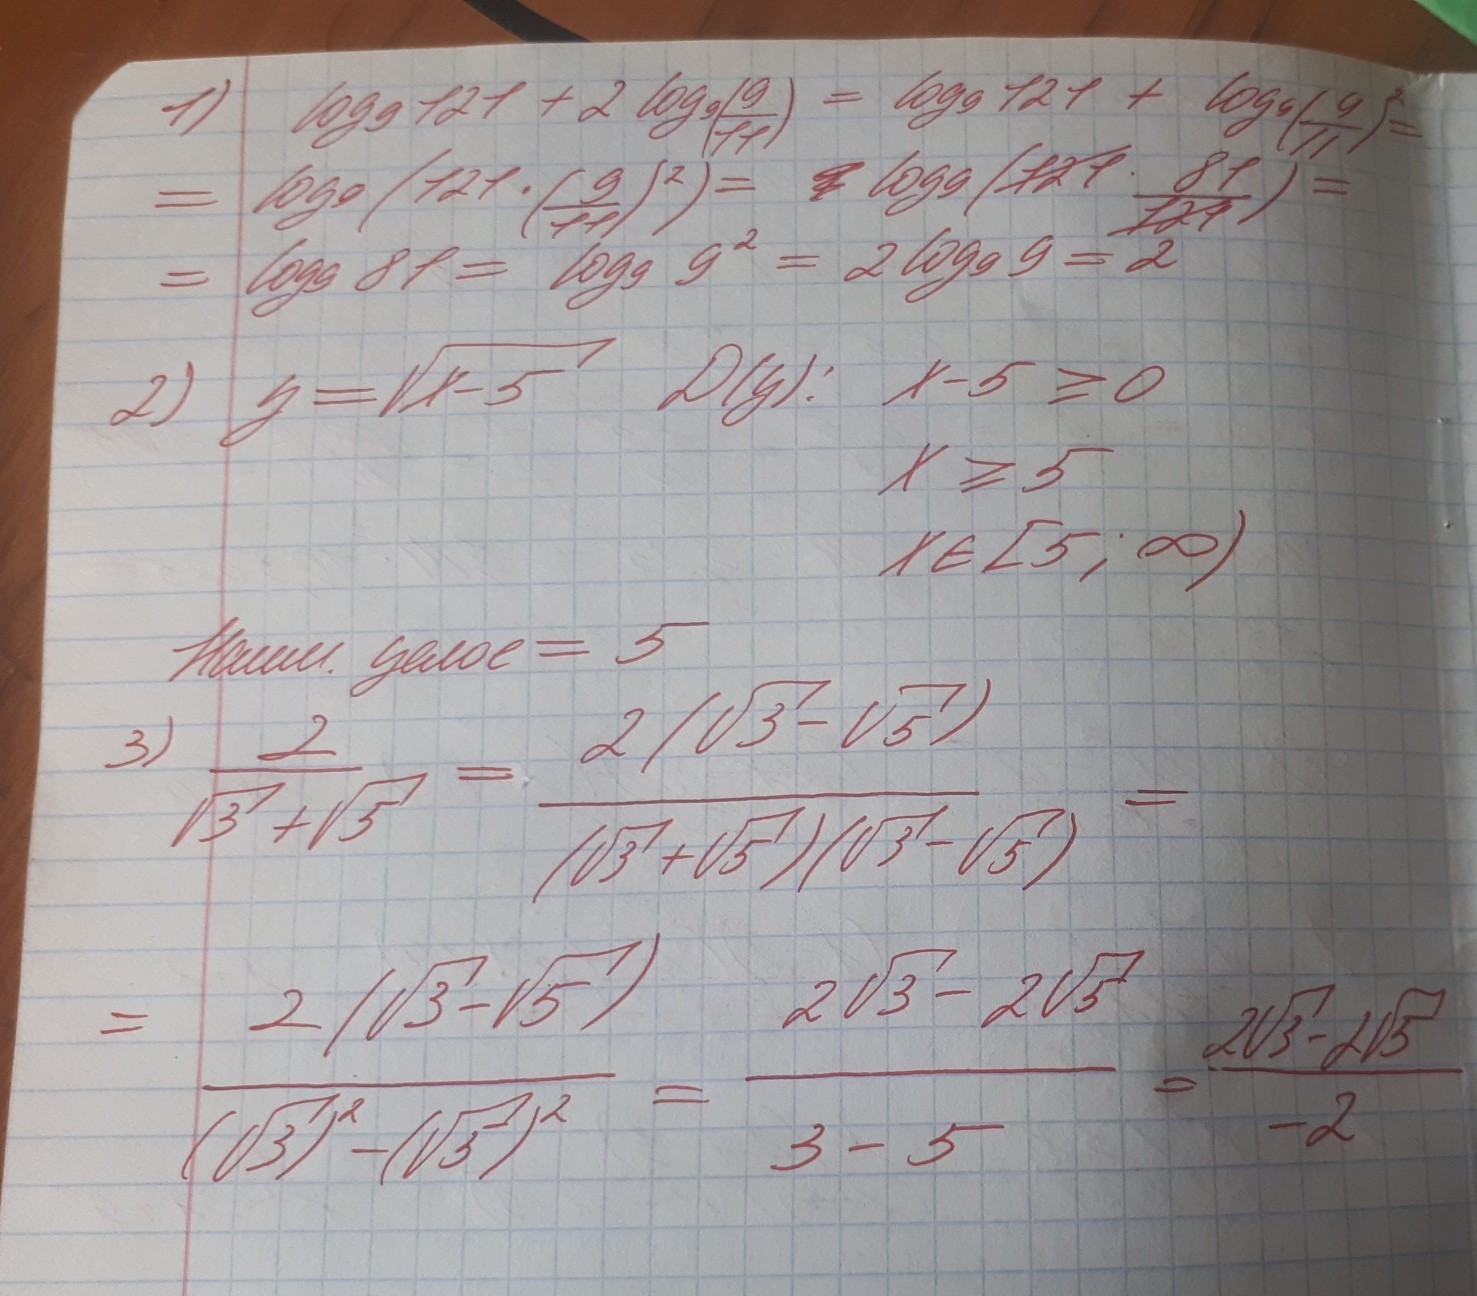 1) log₉121 + 2 log₉(9/11) = log₉121 + log₉(9/11)² =
= log₉(121 · (9/11)²) = log₉(121 · 81/121) =
= log₉81 = log₉9² = 2 log₉9 = 2
2) y = √(x-5) D(y): x-5 ≥ 0
x ≥ 5
x ∈ [5; ∞)
Наим. целое = 5
3) 2/(√3 + √5) = 2(√3 - √5)/((√3 + √5)(√3 - √5)) =
= 2(√3 - √5)/((√3)² - (√5)²) = (2√3 - 2√5)/(3 - 5) = (2√3 - 2√5)/(-2)